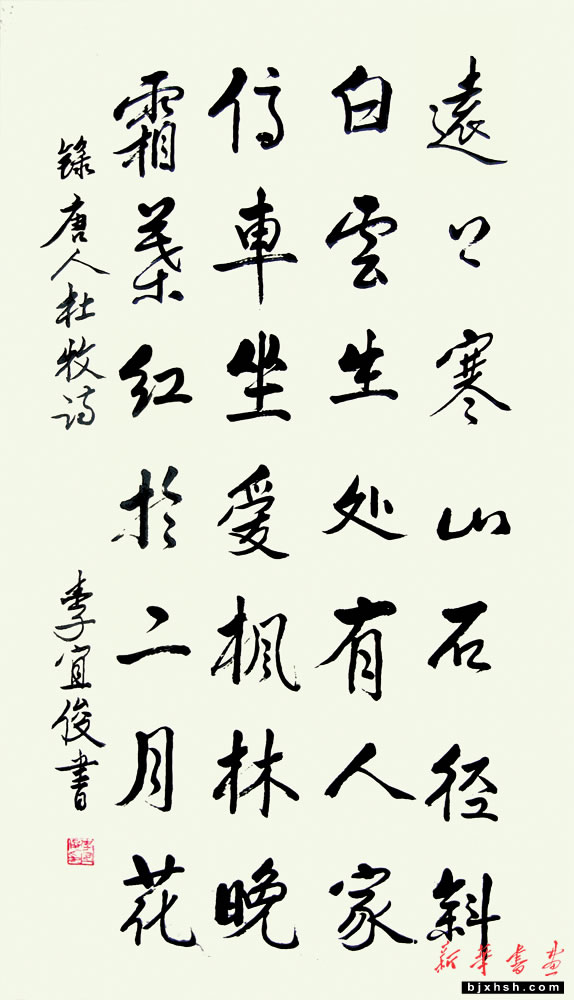 遠上寒山石径斜
白雲生处有人家
停車坐爱楓林晚
霜葉红於二月花
錄唐人杜牧诗
李宜俊書
新华書画
bjxhsh.com